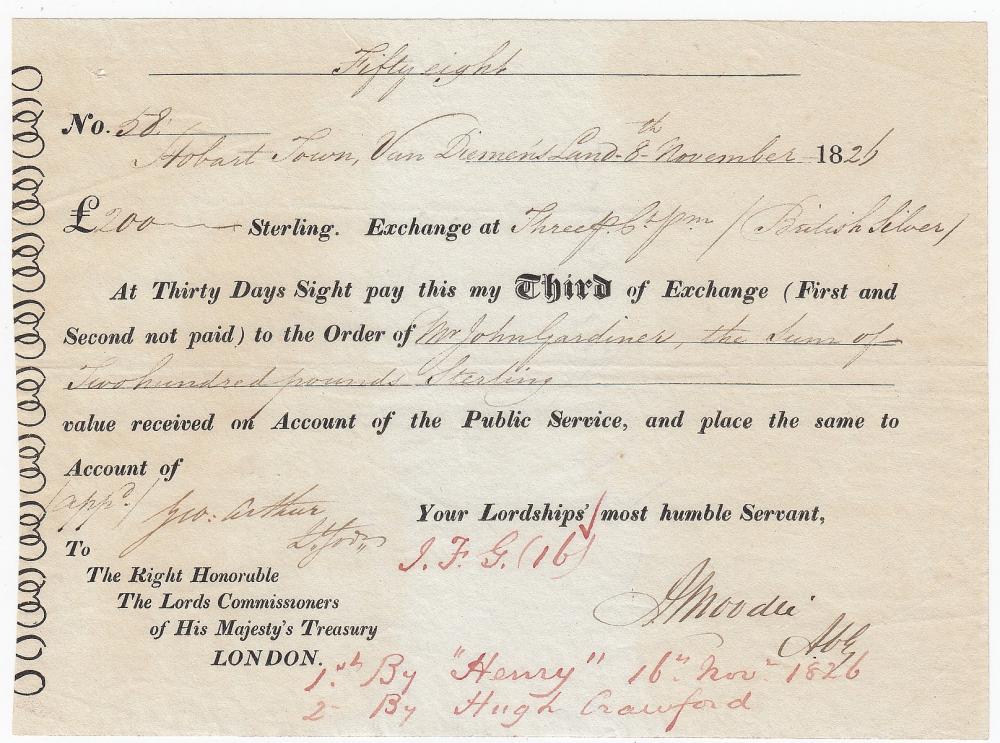 Fifty eight
No. 58.
Hobart Town, Van Diemen's Land 8th November 1826
£200 Sterling. Exchange at Three p. Ct. pm / (British Silver)
At Thirty Days Sight pay this my Third of Exchange (First and
Second not paid) to the Order of Mr John Gardiner, the Sum of
Two hundred pounds Sterling
value received on Account of the Public Service, and place the same to
Account of
(appd.) Geo: Arthur
Your Lordships' most humble Servant,
Lt. Govr.
J. F. G. (16)
To
The Right Honorable
The Lords Commissioners
of His Majesty's Treasury
LONDON.
Moodie
ACG
1st By "Henry" 16th Novr 1826
2 By Hugh Crawford